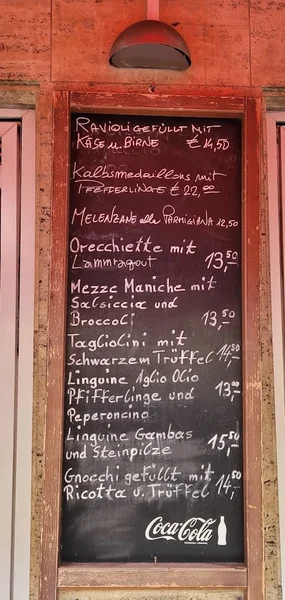 Ravioli gefüllt mit
Käse u. Birne € 14,50
Kalbsmedaillons mit
Pfefferlinge € 22,00
Melenzane alla Parmigiana 12,50
Orecchiette mit
Lammragout 13,50
Mezze Maniche mit
Salsiccia und
Broccoli 13,50
Tagliolini mit
Schwarzem Trüffel 14,50
Linguine Aglio Olio
Pfifferlinge und 13,00
Peperoncino
Linguine Gambas
und Steinpilze 15,50
Gnocchi gefüllt mit
Ricotta u. Trüffel 14,50
Coca-Cola